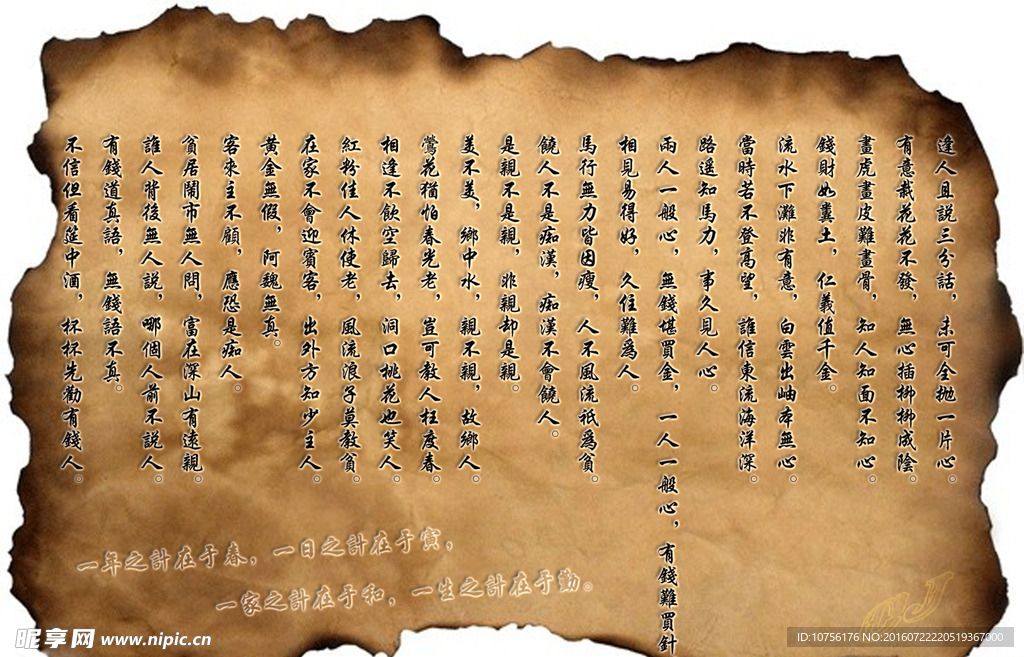 逢人且説三分話，未可全抛一片心。
有意栽花花不發，無心插柳柳成陰。
畫虎畫皮難畫骨，知人知面不知心。
錢財如糞土，仁義值千金。
流水下灘非有意，白雲出岫本無心。
當時若不登高望，誰信東流海洋深。
路遥知馬力，事久見人心。
兩人一般心，無錢堪買金，一人一般心，有錢難買針
相見易得好，久住難爲人。
馬行無力皆因瘦，人不風流衹爲貧。
饒人不是痴漢，痴漢不會饒人。
是親不是親，非親却是親。
美不美，鄉中水，親不親，故鄉人。
鶯花猶怕春光老，豈可教人枉度春。
相逢不飲空歸去，洞口桃花也笑人。
紅粉佳人休使老，風流浪子莫教貧。
在家不會迎賓客，出外方知少主人。
黄金無假，阿魏無真。
客來主不顧，應恐是痴人。
貧居鬧市無人問，富在深山有遠親。
誰人背後無人説，哪個人前不説人。
有錢道真語，無錢語不真。
不信但看筵中酒，杯杯先勸有錢人。
一年之計在于春，一日之計在于寅，
一家之計在于和，一生之計在于勤。
昵享网 www.nipic.cn
ID:10756176 NO:20160722220519367000